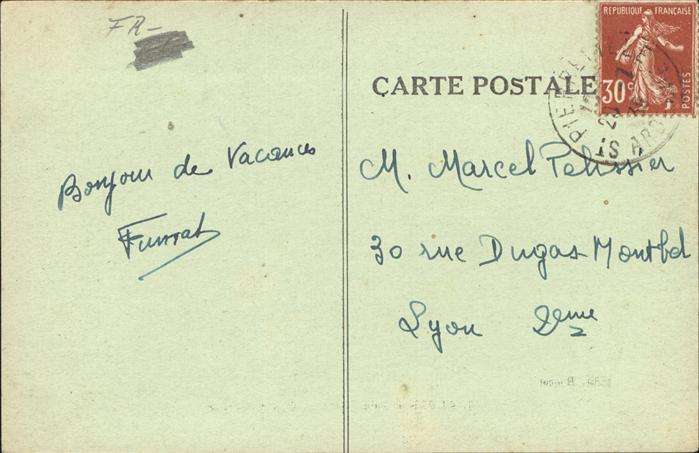 FR-
CARTE POSTALE
REPUBLIQUE FRANÇAISE
30c
POSTES
Bonjour de Vacances
M. Marcel Pelissier
30 rue Dugas-Montbel
Lyon 2eme